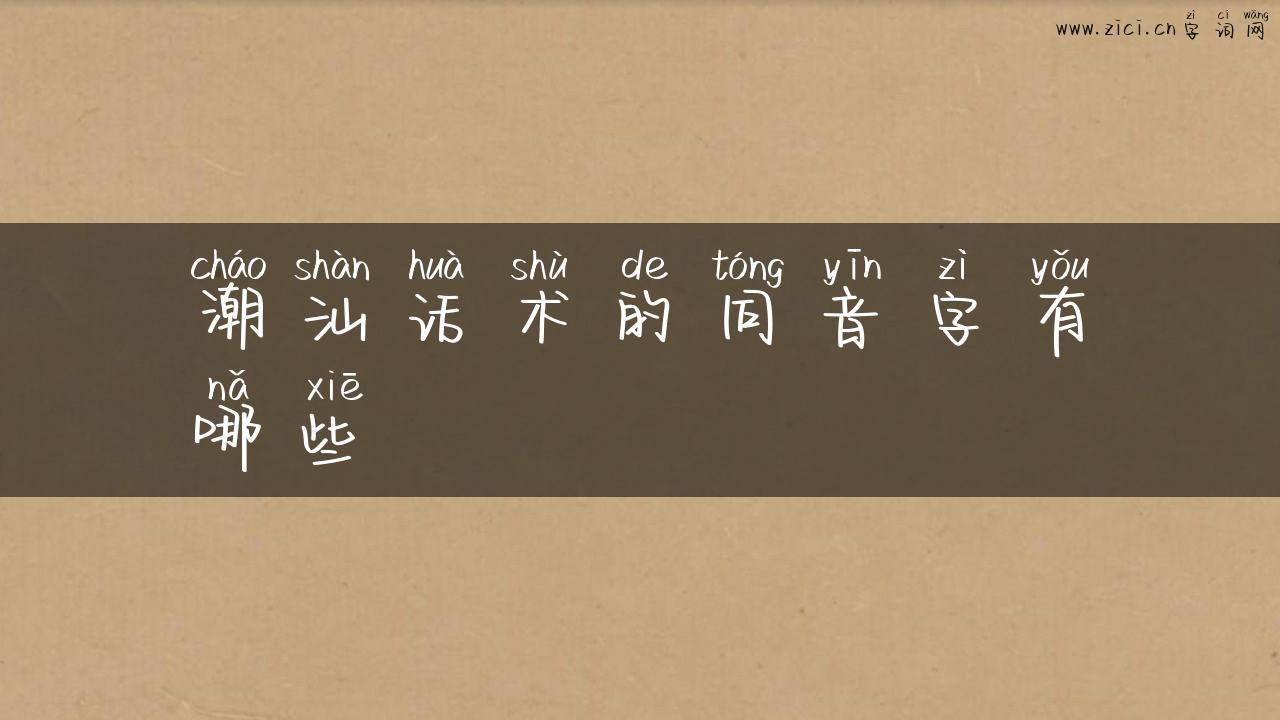 zì cí wǎng
www.zici.cn 字词网
cháo shàn huà shù de tóng yīn zì yǒu
潮汕话术的同音字有
nǎ xiē
哪些